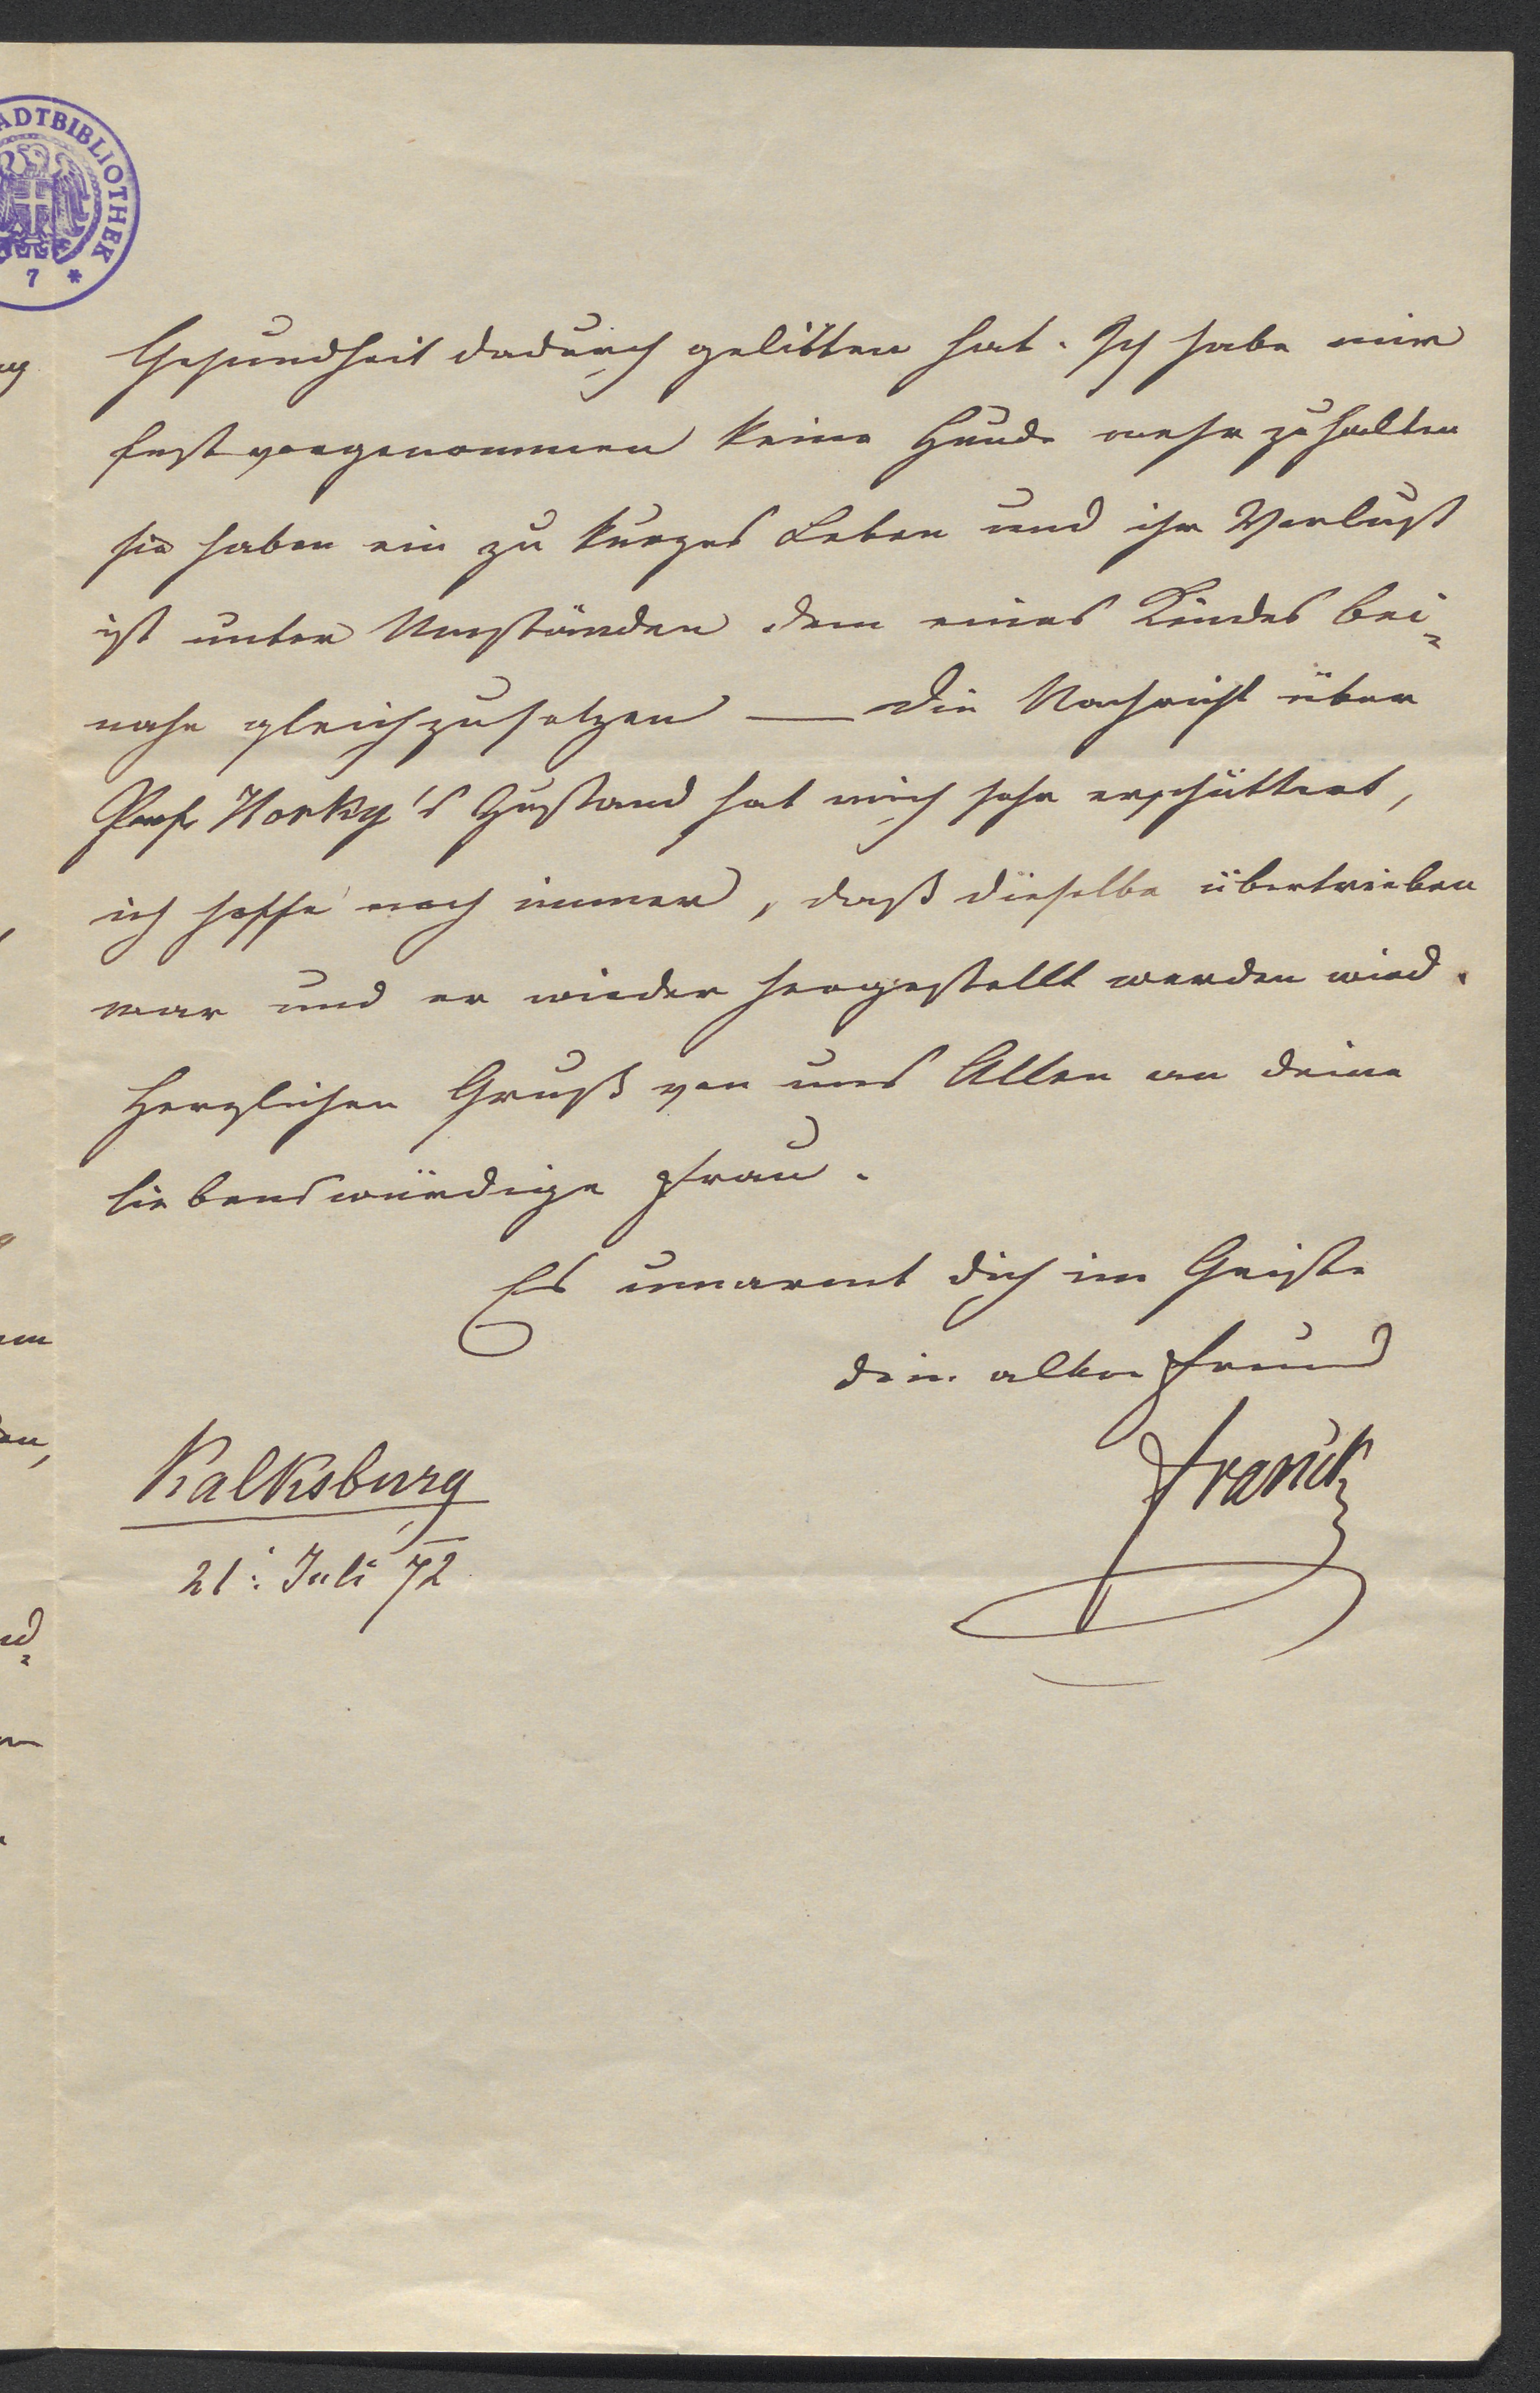 ADTBIBLIOTHEK
7 *
Gesundheit dadurch gelitten hat. Ich habe mir
fest vorgenommen keine Hunde mehr zu halten
sie haben ein zu kurzes Leben und ihr Verlust
ist unter Umständen dem eines Kindes bei⸗
nahe gleichzusetzen — Die Nachricht über
Prof. Horky's Zustand hat mich sehr erschüttert,
ich hoffe noch immer, daß dieselbe übertrieben
war und er wieder hergestellt werden wird.
Herzlichen Gruß von uns Allen an deine
liebenswürdige Frau.
Es umarmt dich im Geiste
dein alter Freund
Franck
Kalksburg
21. Juli 72